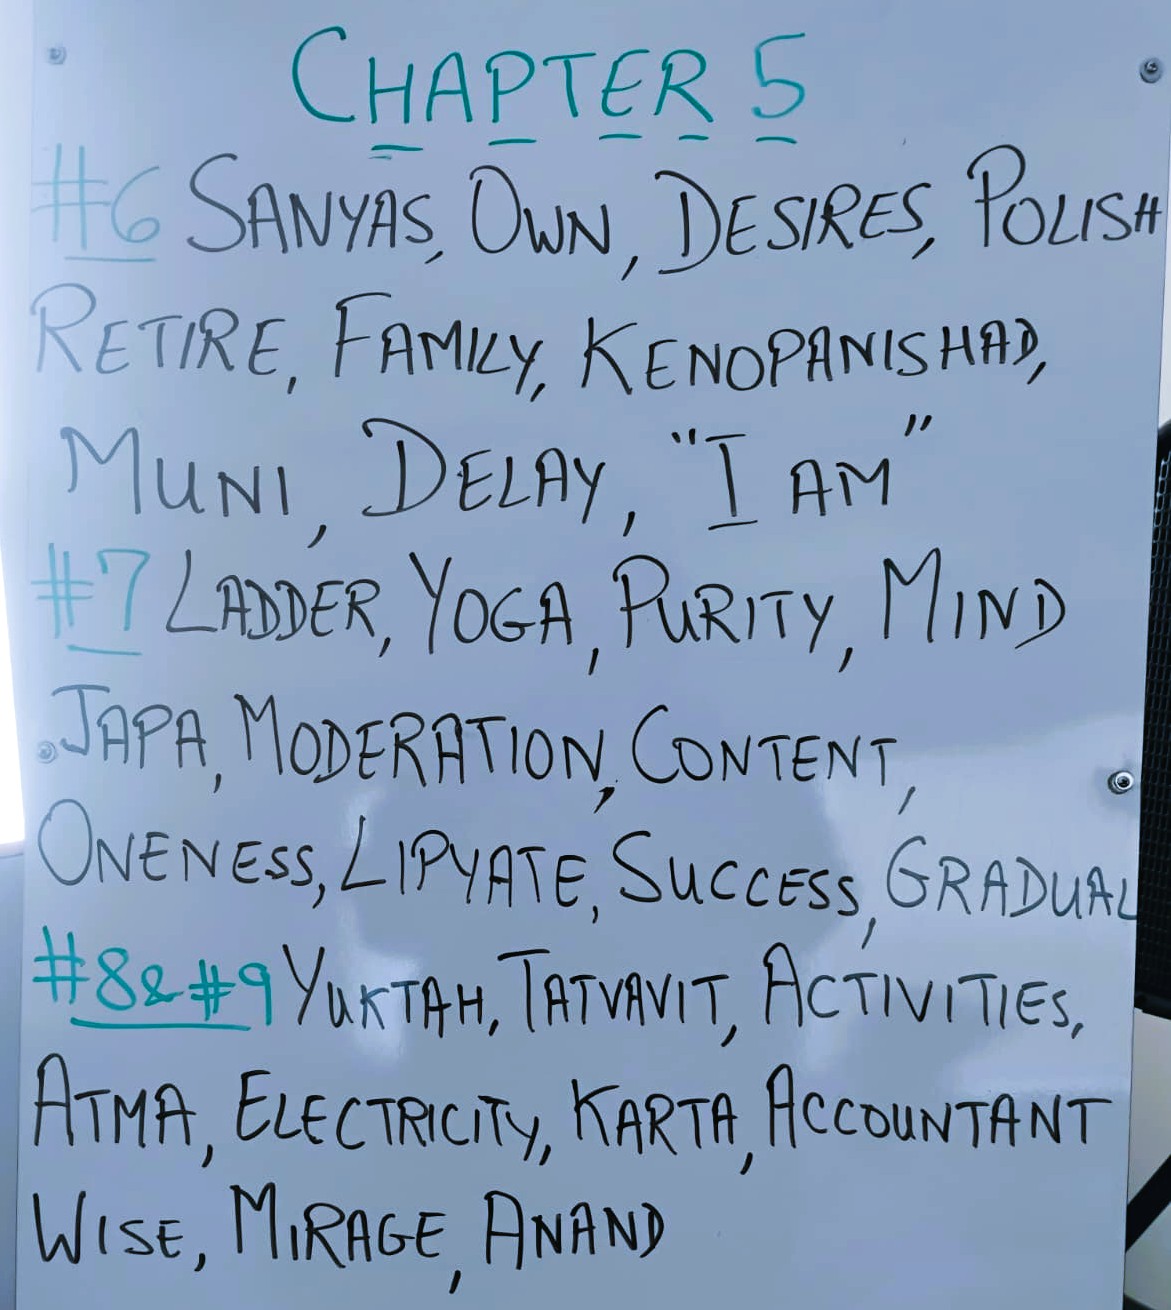 CHAPTER 5
#6 SANYAS, OWN, DESIRES, POLISH
RETIRE, FAMILY, KENOPANISHAD,
MUNI, DELAY, "I AM"
#7 LADDER, YOGA, PURITY, MIND
JAPA, MODERATION, CONTENT,
ONENESS, LIPYATE, SUCCESS, GRADUAL
#8 & #9 YUKTAH, TATVAVIT, ACTIVITIES,
ATMA, ELECTRICITY, KARTA, ACCOUNTANT
WISE, MIRAGE, ANAND